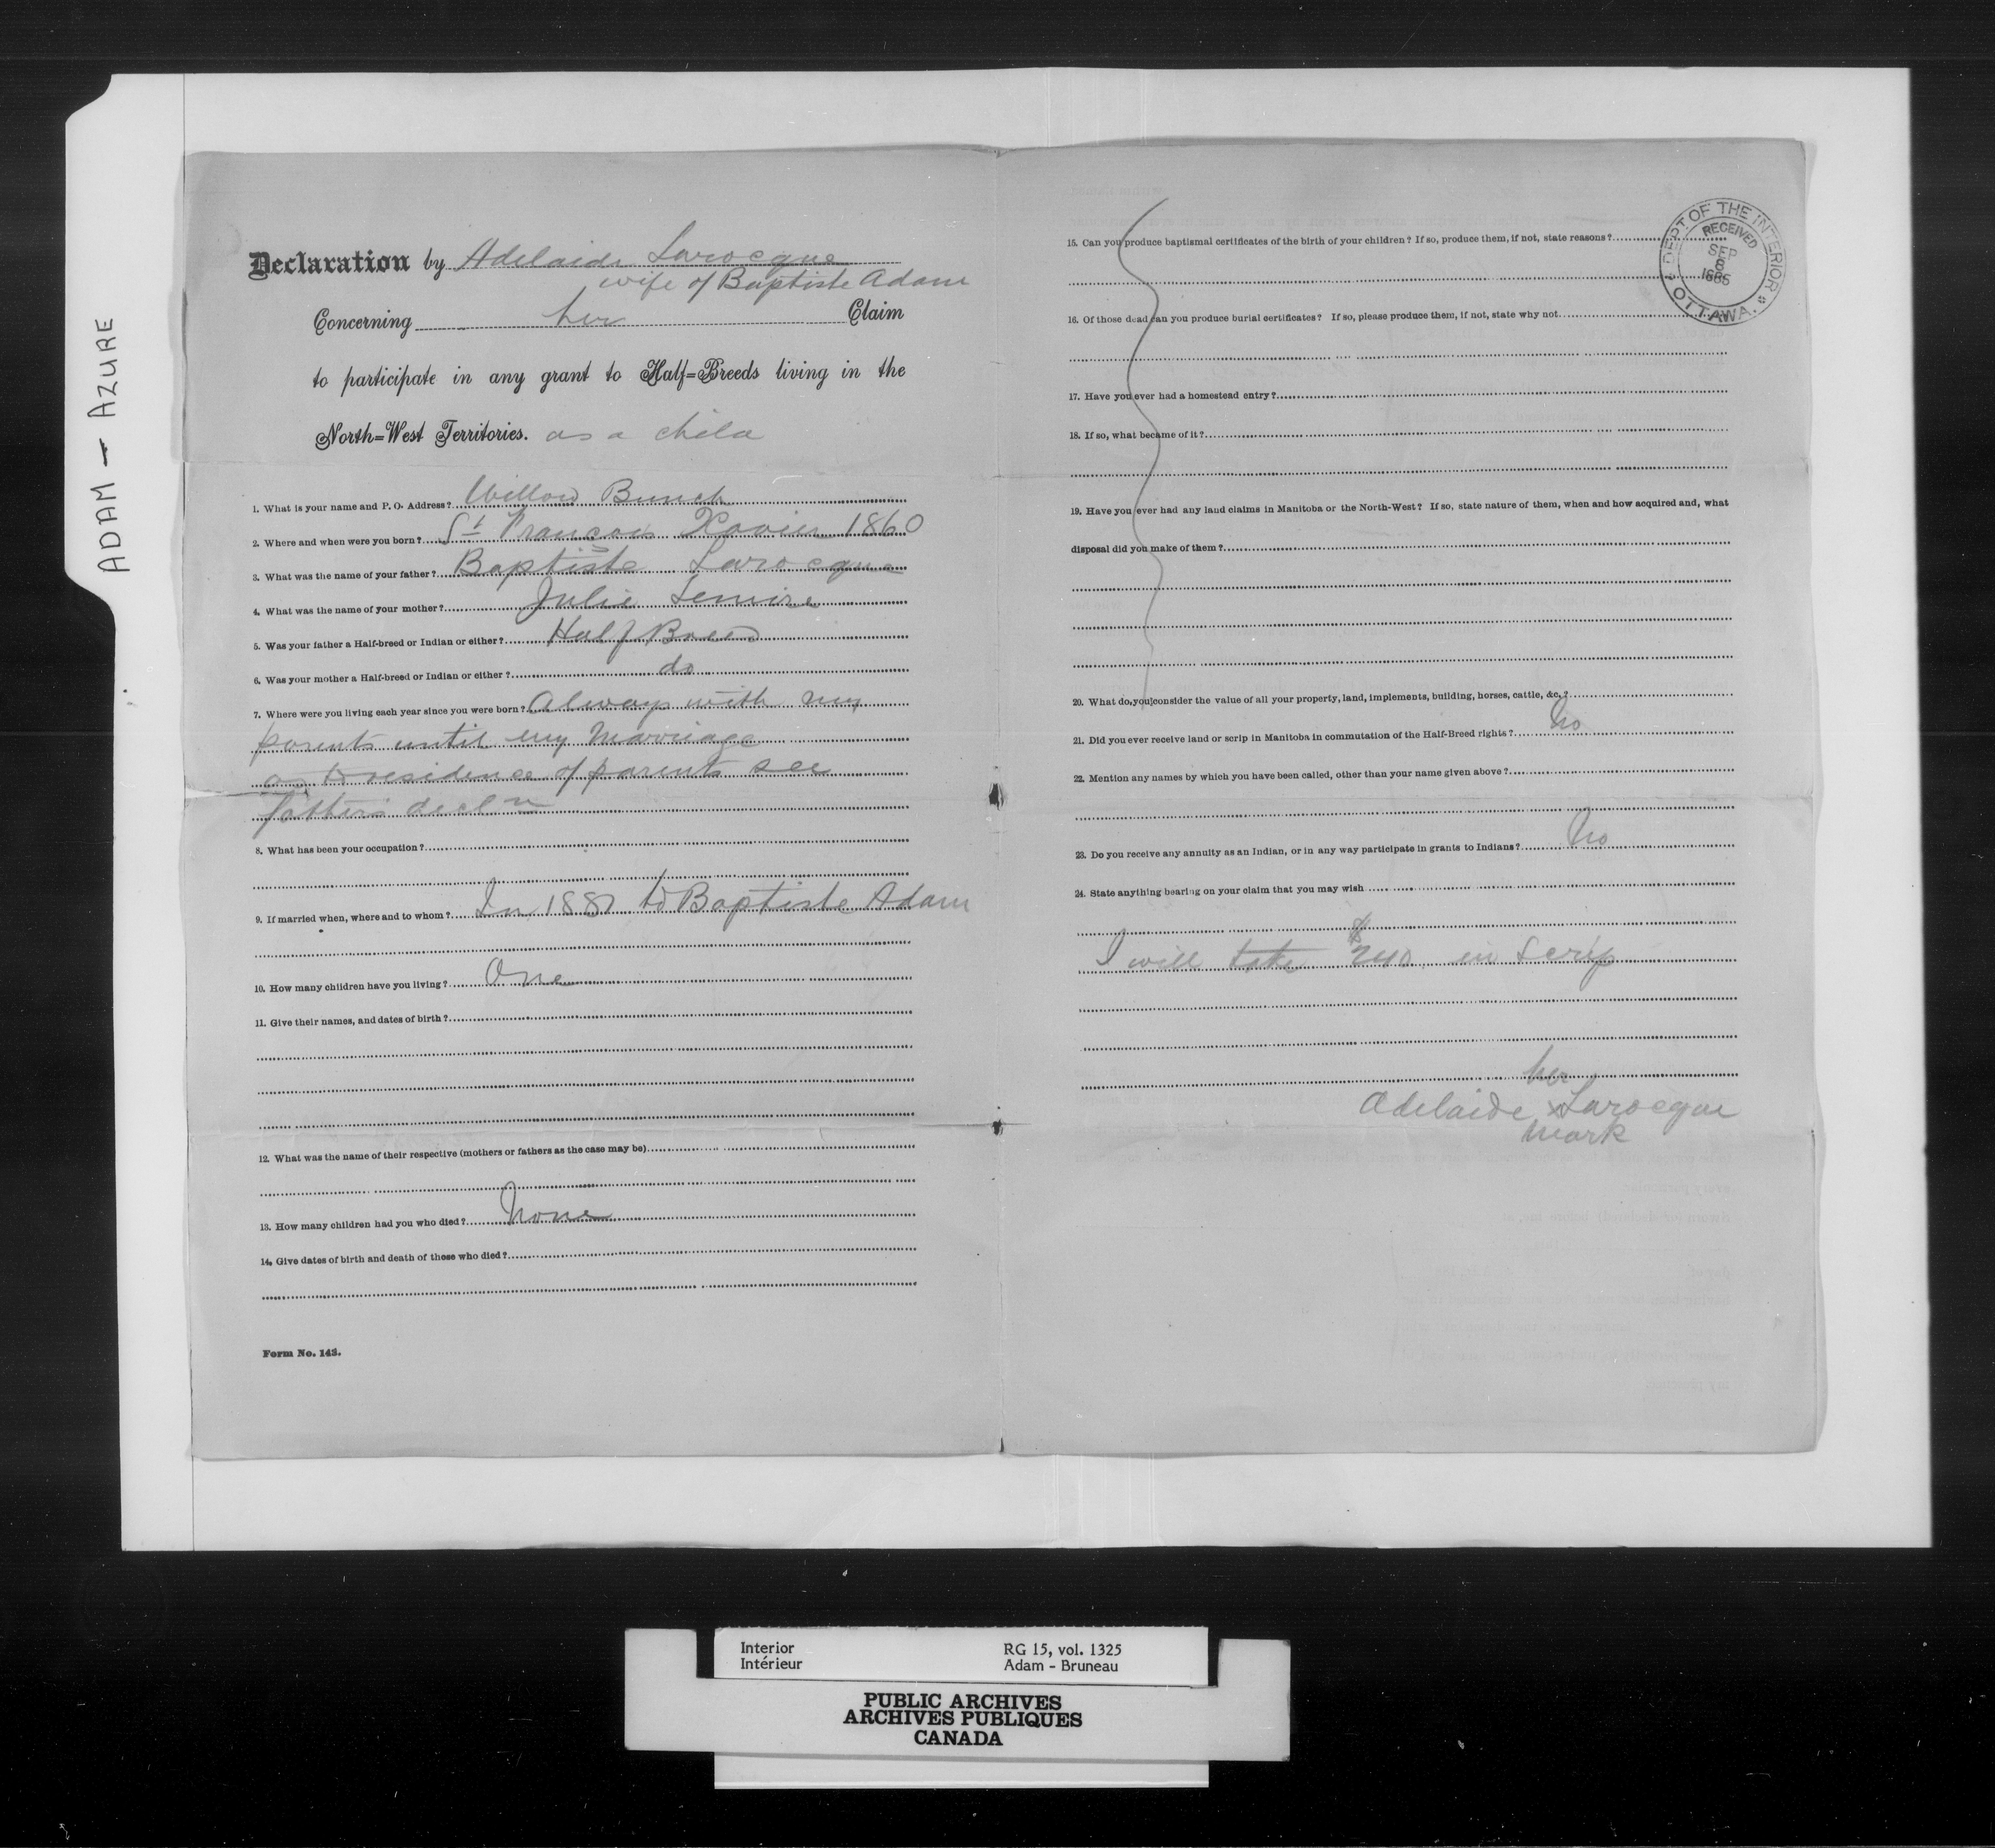 ADAM - AZURE
Declaration by Adelaide Larocque
wife of Baptiste Adam
Concerning her Claim
to participate in any grant to Half=Breeds living in the
North=West Territories. as a child
1. What is your name and P. O. Address? Willow Bunch
2. Where and when were you born? St Francois Xavier 1860
3. What was the name of your father? Baptiste Larocque
4. What was the name of your mother? Julie Lemire
5. Was your father a Half-breed or Indian or either? Half Breed
6. Was your mother a Half-breed or Indian or either? do
7. Where were you living each year since you were born? Always with my
parents until my marriage
as to residence of parents see
fathers decln
8. What has been your occupation?
9. If married when, where and to whom? In to Baptiste Adam
10. How many children have you living? One
11. Give their names, and dates of birth?
12. What was the name of their respective (mothers or fathers as the case may be)
13. How many children had you who died? None
14. Give dates of birth and death of those who died?
Form No. 143.
15. Can you produce baptismal certificates of the birth of your children? If so, produce them, if not, state reasons?
16. Of those dead can you produce burial certificates? If so, please produce them, if not, state why not
17. Have you ever had a homestead entry?
18. If so, what became of it?
19. Have you ever had any land claims in Manitoba or the North-West? If so, state nature of them, when and how acquired and, what
disposal did you make of them?
20. What do you consider the value of all your property, land, implements, building, horses, cattle, &c.?
21. Did you ever receive land or scrip in Manitoba in commutation of the Half-Breed rights? No
22. Mention any names by which you have been called, other than your name given above?
23. Do you receive any annuity as an Indian, or in any way participate in grants to Indians? No
24. State anything bearing on your claim that you may wish
I will take $240. in Scrip
her
Adelaide x Larocque
mark
DEPT OF THE INTERIOR
RECEIVED
SEP
8
OTTAWA.
Interior RG 15, vol. 1325
Intérieur Adam - Bruneau
PUBLIC ARCHIVES
ARCHIVES PUBLIQUES
CANADA